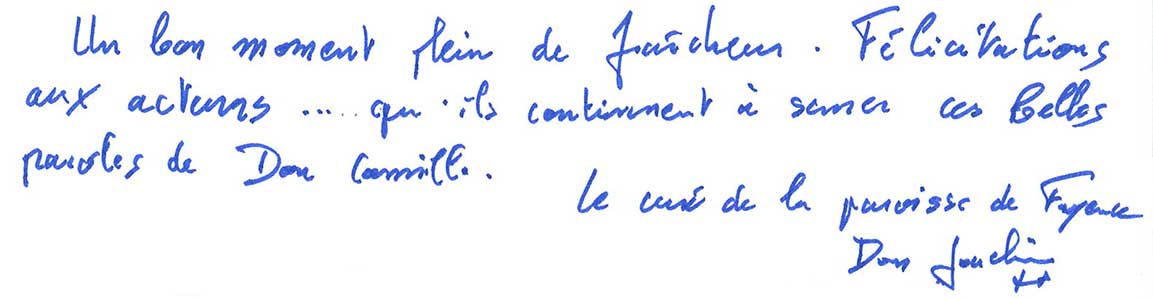 Un bon moment plein de fraîcheur. Félicitations
aux acteurs ..... qu'ils continuent à semer ces belles
paroles de Don Camillo.
Le curé de la paroisse de Fayence
Don